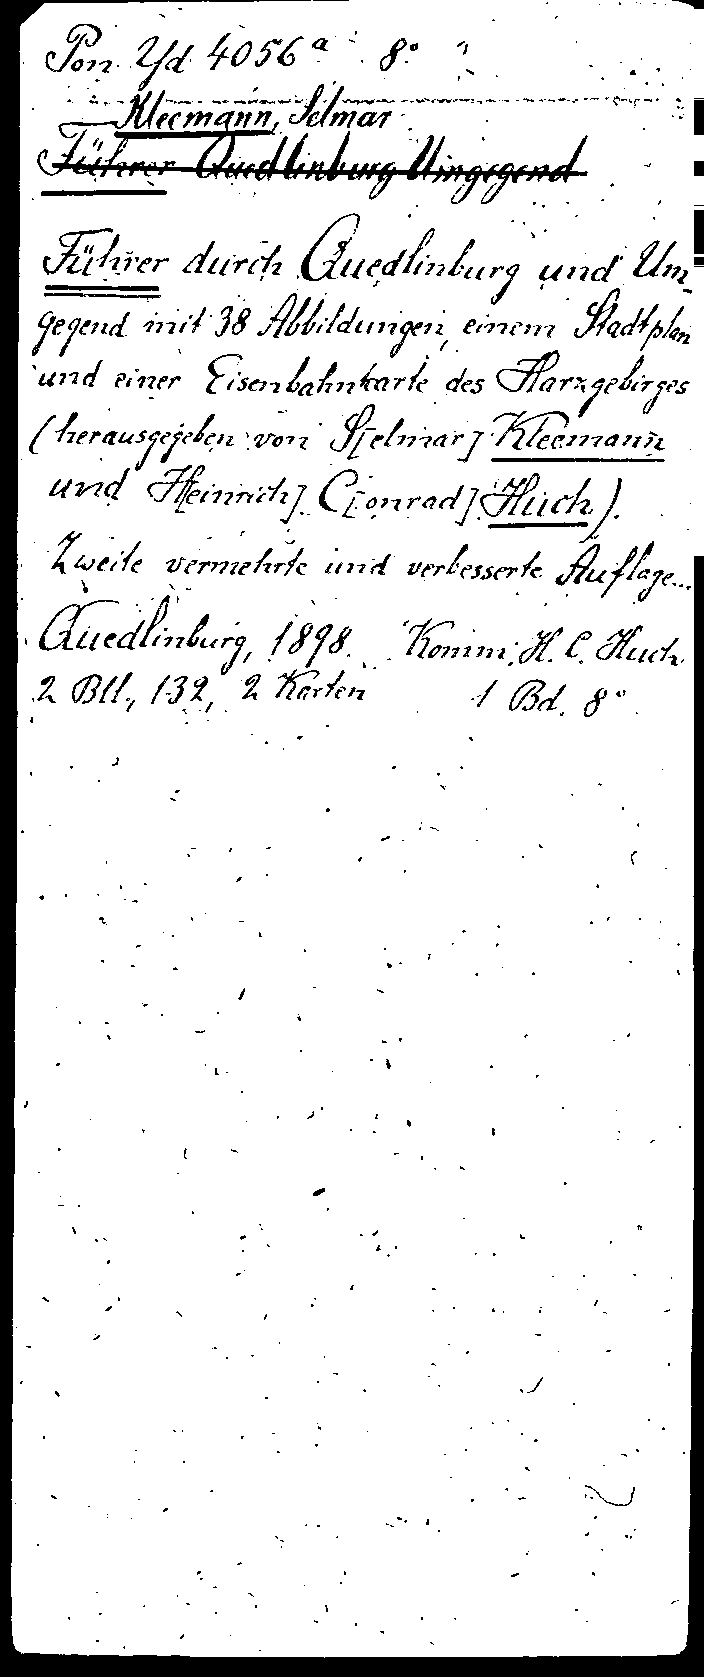 Pon Yd 4056a 8°
Kleemann, Selmar
Führer Quedlinburg Umgegend
Führer durch Quedlinburg und Um-
gegend mit 38 Abbildungen, einem Stadtplan
und einer Eisenbahnkarte des Harzgebirges
(herausgegeben von S[elmar] Kleemann
und H[einrich] C[onrad] Huch).
Zweite vermehrte und verbesserte Auflage...
Quedlinburg, 1898. Komm. H. C. Huch
2 Bll., 132, 2 Karten 1 Bd. 8°